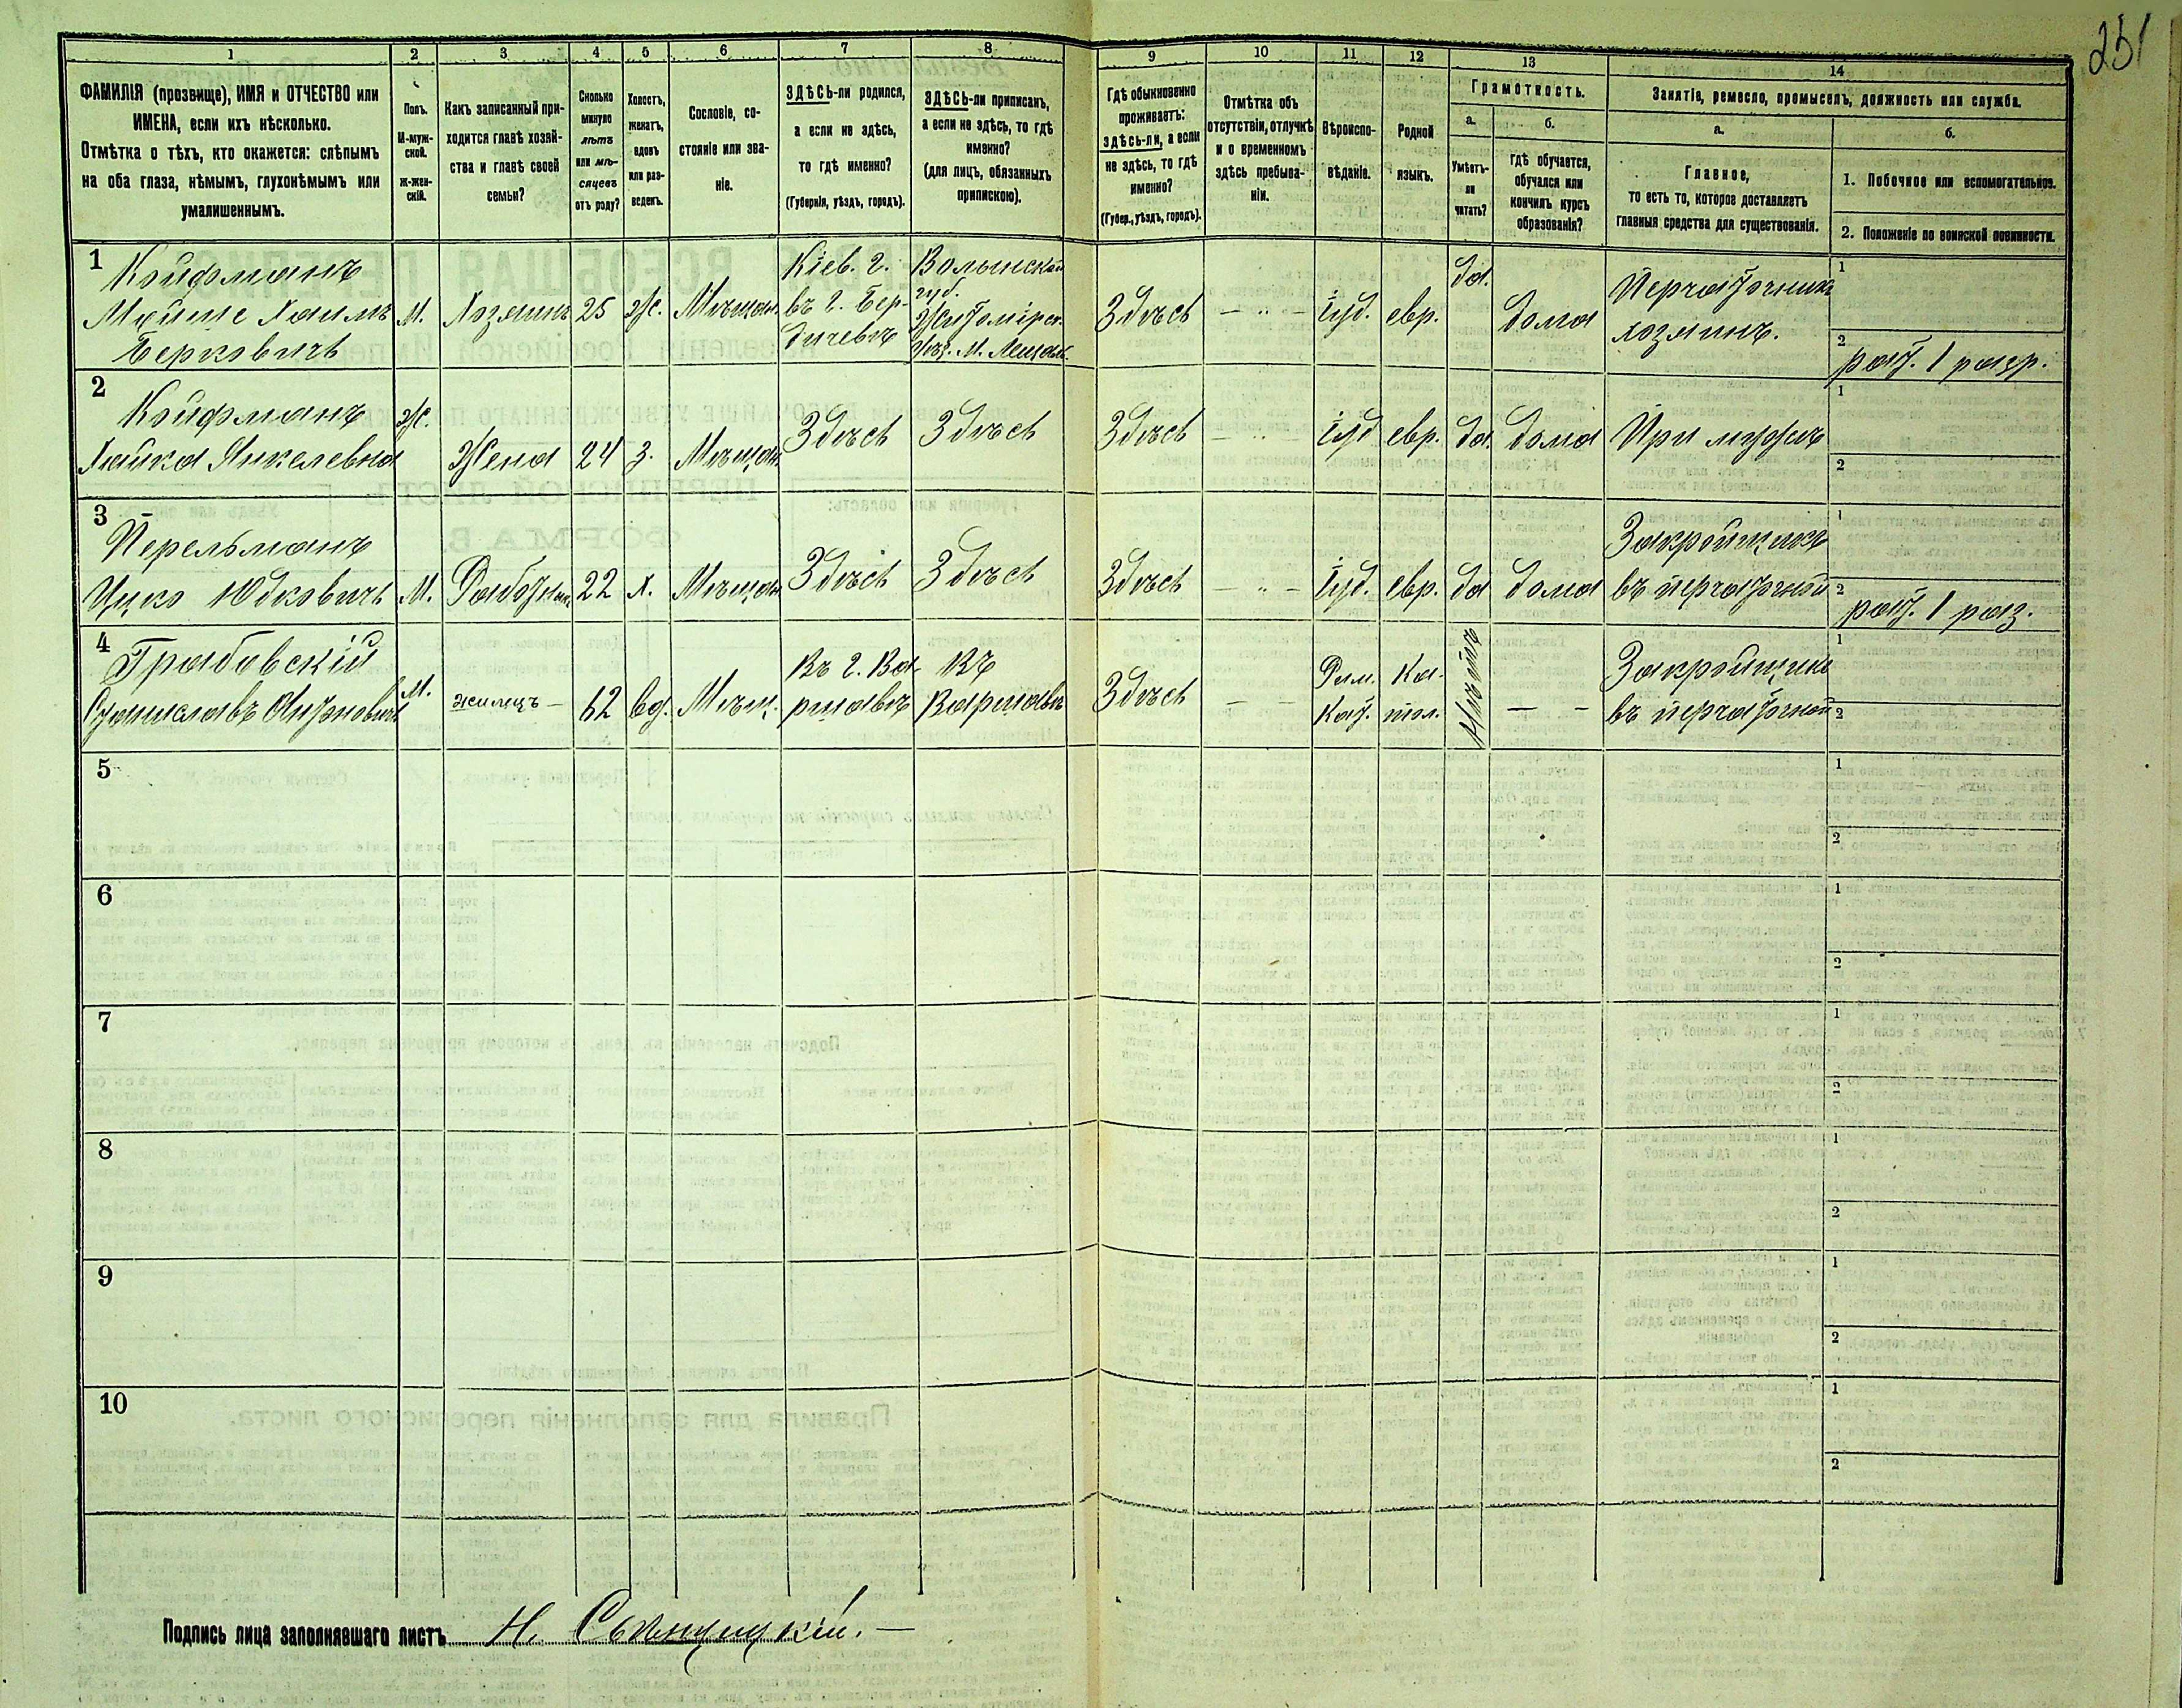 251
1 2 3 4 5 6 7 8 9 10 11 12 13 14
ФАМИЛІЯ (прозвище), ИМЯ и ОТЧЕСТВО или
ИМЕНА, если ихъ нѣсколько.
Отмѣтка о тѣхъ, кто окажется: слѣпымъ
на оба глаза, нѣмымъ, глухонѣмымъ или
умалишеннымъ.
Полъ.
М-муж-
ской.
Ж-жен-
скій.
Какъ записанный при-
ходится главѣ хозяй-
ства и главѣ своей
семьи?
Сколько
минуло
лѣтъ
или мѣ-
сяцевъ
отъ роду?
Холостъ,
женатъ,
вдовъ
или раз-
веденъ.
Сословіе, со-
стояніе или зва-
ніе.
ЗДѢСЬ-ли родился,
а если не здѣсь,
то гдѣ именно?
(Губернія, уѣздъ, городъ).
ЗДѢСЬ-ли приписанъ,
а если не здѣсь, то гдѣ
именно?
(для лицъ, обязанныхъ
припискою).
Гдѣ обыкновенно
проживаетъ:
здѣсь-ли, а если
не здѣсь, то гдѣ
именно?
(Губер., уѣздъ, городъ).
Отмѣтка объ
отсутствіи, отлучкѣ
и о временномъ
здѣсь пребыва-
ніи.
Вѣроиспо-
вѣданіе.
Родной
языкъ.
Грамотность.
а.
Умѣетъ-
ли
читать?
б.
гдѣ обучается,
обучался или
кончилъ курсъ
образованія?
Занятіе, ремесло, промыселъ, должность или служба.
а.
Главное,
то есть то, которое доставляетъ
главныя средства для существованія.
б.
1. Побочное или вспомогательное.
2. Положеніе по воинской повинности.
1
Койфманъ
Мойше Хаимъ
Берковичъ
М.
Хозяинъ
25
Ж.
Мѣщан.
Кіев. г.
въ г. Бер-
дичевѣ
Волынской
губ.
Житомірск.
уѣз. М.
Здѣсь
— " —
Іуд.
евр.
да.
дома
Перчаточникъ
хозяинъ.
1
2
рат. 1 разр.
2
Койфманъ
Хайка Янкелевна
Ж.
Жена
24
З.
Мѣщан
Здѣсь
Здѣсь
Здѣсь
— " —
Іуд
евр.
да.
дома
При мужѣ
1
2
3
Перельманъ
Ицко Юдковичъ
М.
Работник
22
Х.
Мѣщан
Здѣсь
Здѣсь
Здѣсь
— " —
Іуд.
евр.
да
дома
Закройщикъ
въ перчаточной
1
2
рат. 1 раз.
4
Грабовскій
Станиславъ Антоновичъ
М.
жилецъ —
62
вд.
Мѣщ.
Въ г. Ва-
ршавѣ
Въ
Варшавѣ
Здѣсь
— —
Рим.
Кат.
— —
Закройщикъ
въ перчаточной
1
2
5
1
2
6
1
2
7
1
2
8
1
2
9
1
2
10
1
2
Подпись лица заполнявшаго листъ Н.